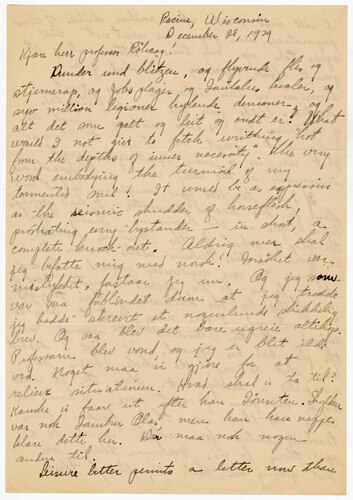 Racine, Wisconsin
December 28, 1929
Kjære herr professor Rölvaag!
Dunder und blitzen, og flyvende flis og
stjernerap, og Jobs plager, og Tantalus kvaler, og
syv million legioner hylende demoner, og
alt det som galt og leit og ondt er! What
would I not give to fetch, writhing hot
from the depths of inner necessity the very
word embodying the turmoil of my
tormented soul! It must be as expressive
as the seismic shudder of horseflesh,
prostrating every bystander — in short, a
complete knock-out. Aldrig mer skal
jeg befatte mig med norsk! Forsöket var
mislykket, fastaar jeg nu. Og jeg som
var saa forblindet dum at jeg trodde
jeg hadde skrevet et nogenlunde skikkelig
brev. Og saa blev det bare altihop.
Professoren blev vond og jeg er blit
vred. Noget maa vi gjöre for at
relieve situationen. Hvad skal vi ta til?
Kanske vi faar ut efter han Tönseten. Skylden
var nok Janitor Olas, men han kan neppe
blan dette her. Der maa nok nogen
anden til.
Leisure better permits a letter now than